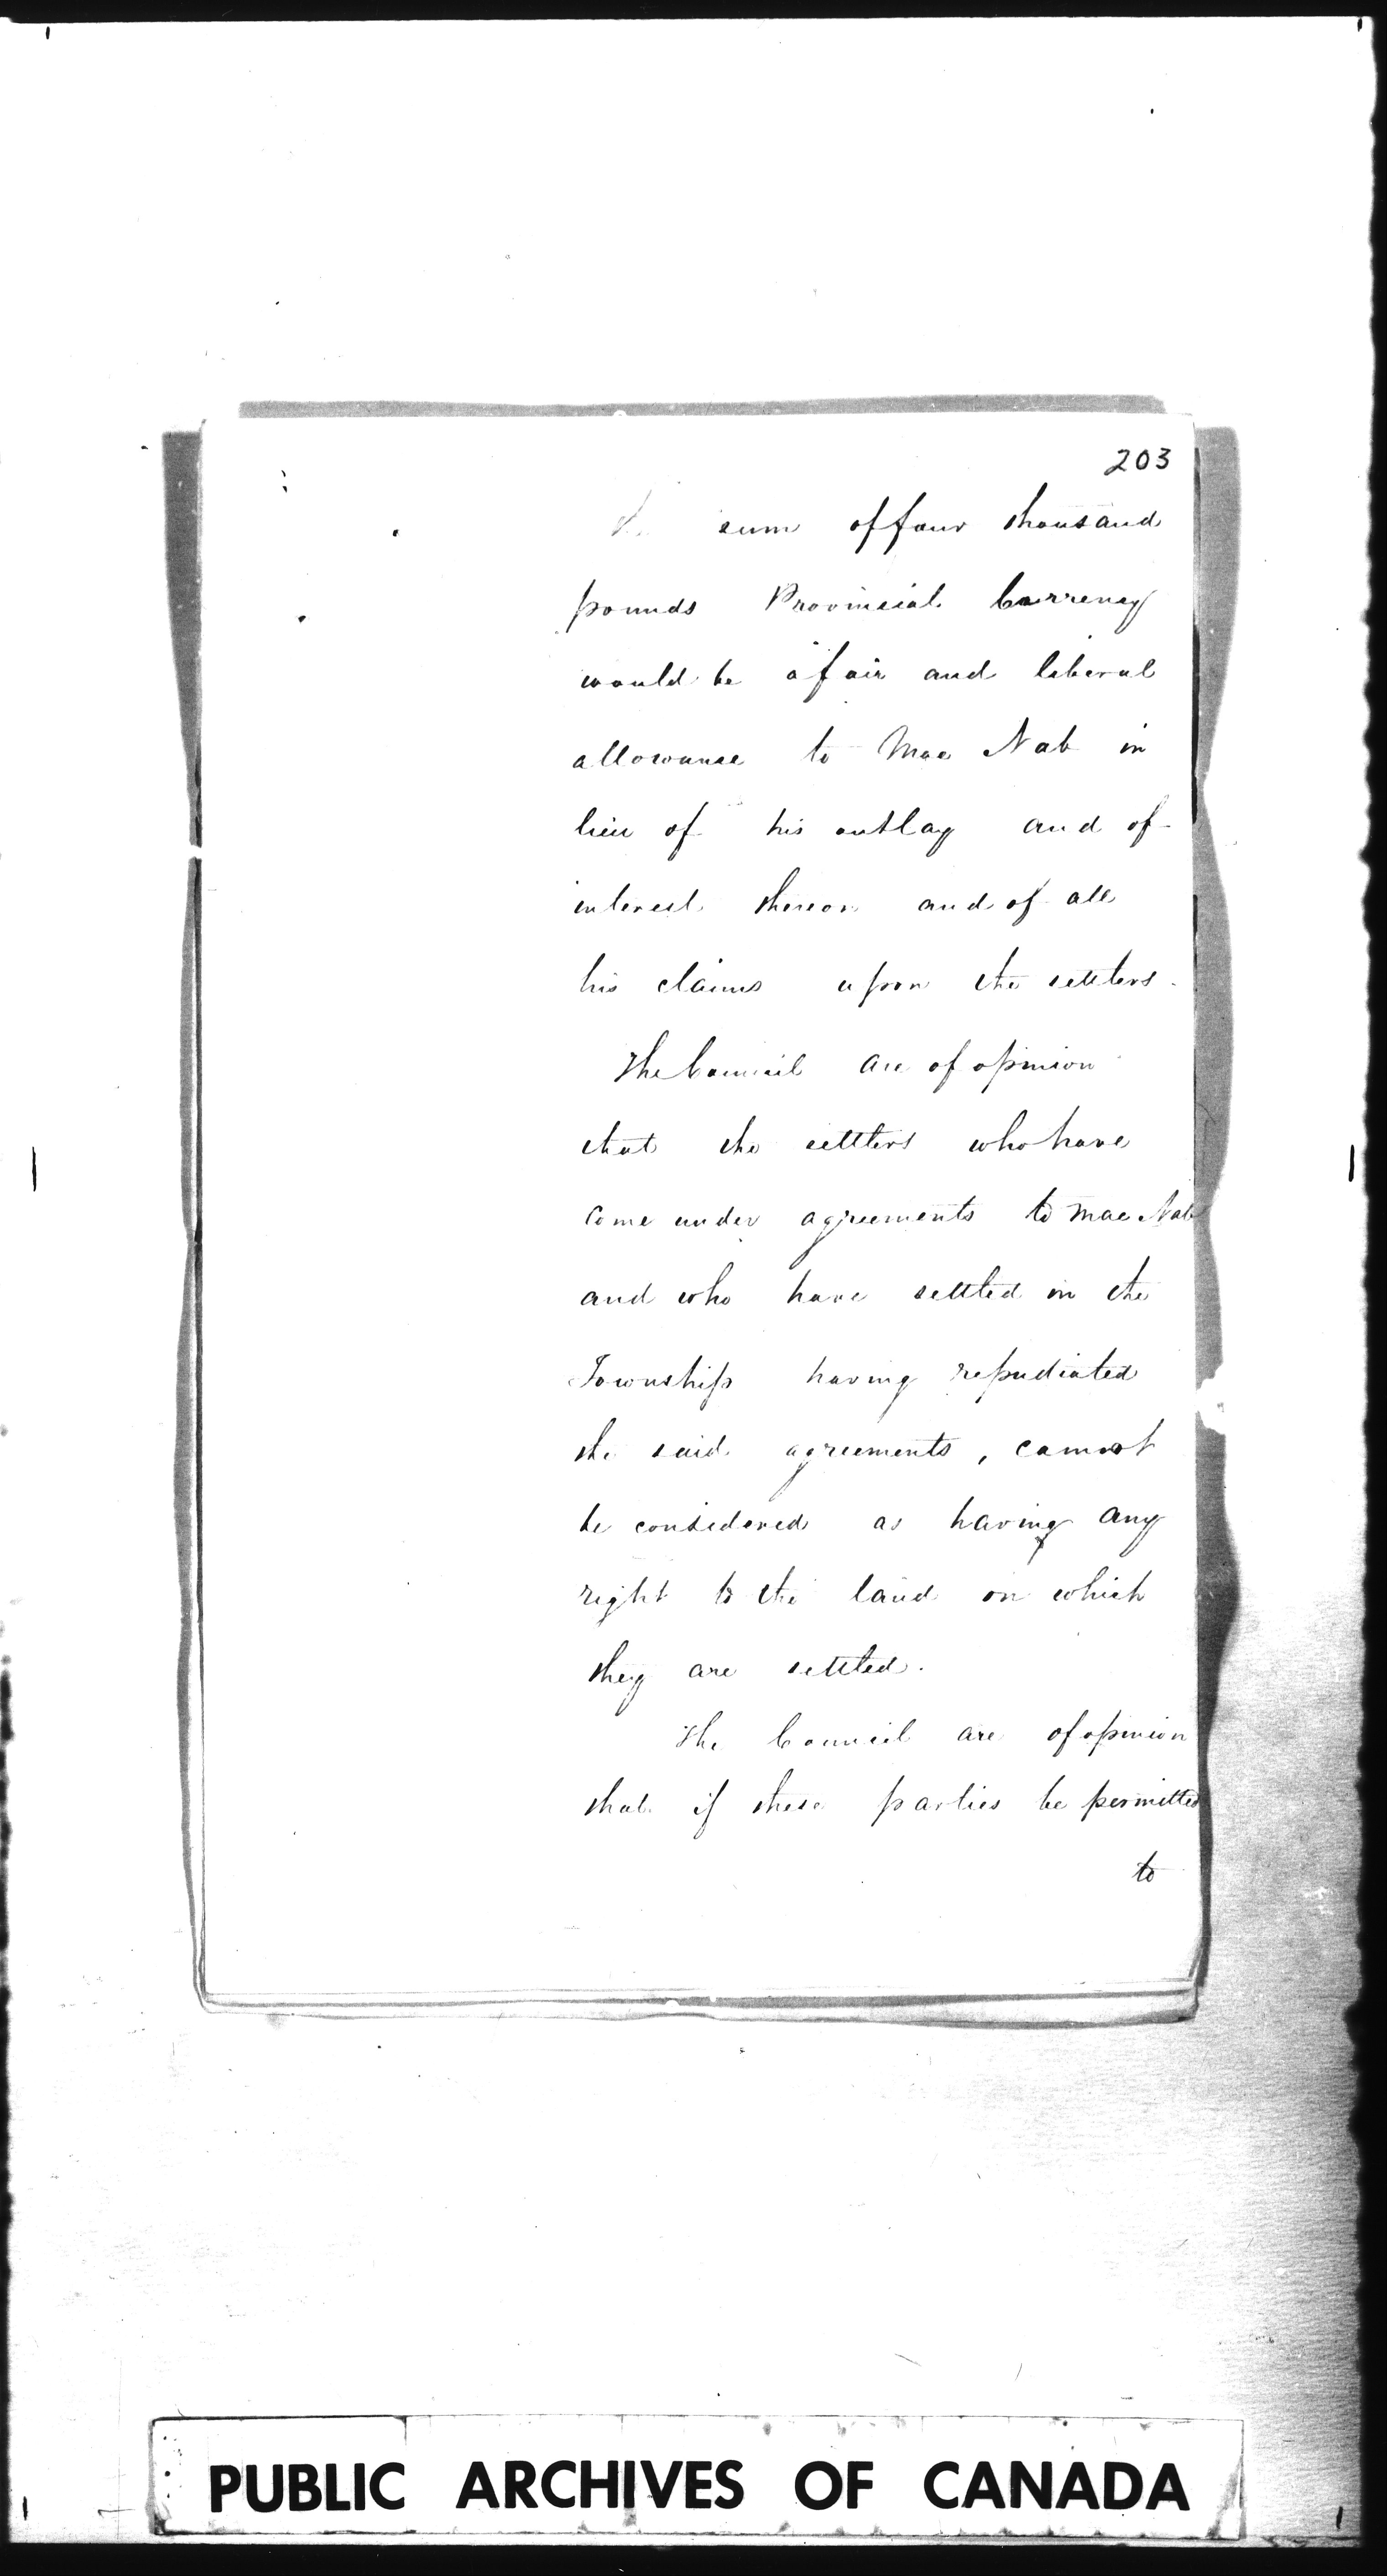 203
the sum of four thousand
pounds Provincial Currency
would be a fair and liberal
allowance to Mac Nab in
lieu of his outlay and of
interest thereon and of all
his claims upon the settlers.
The Council are of opinion
that the settlers who have
come under agreements to Mac Nab
and who have settled in the
Township having repudiated
the said agreements, cannot
be considered as having any
right to the land on which
they are settled.
The Council are of opinion
that if these parties be permitted
to
PUBLIC ARCHIVES OF CANADA